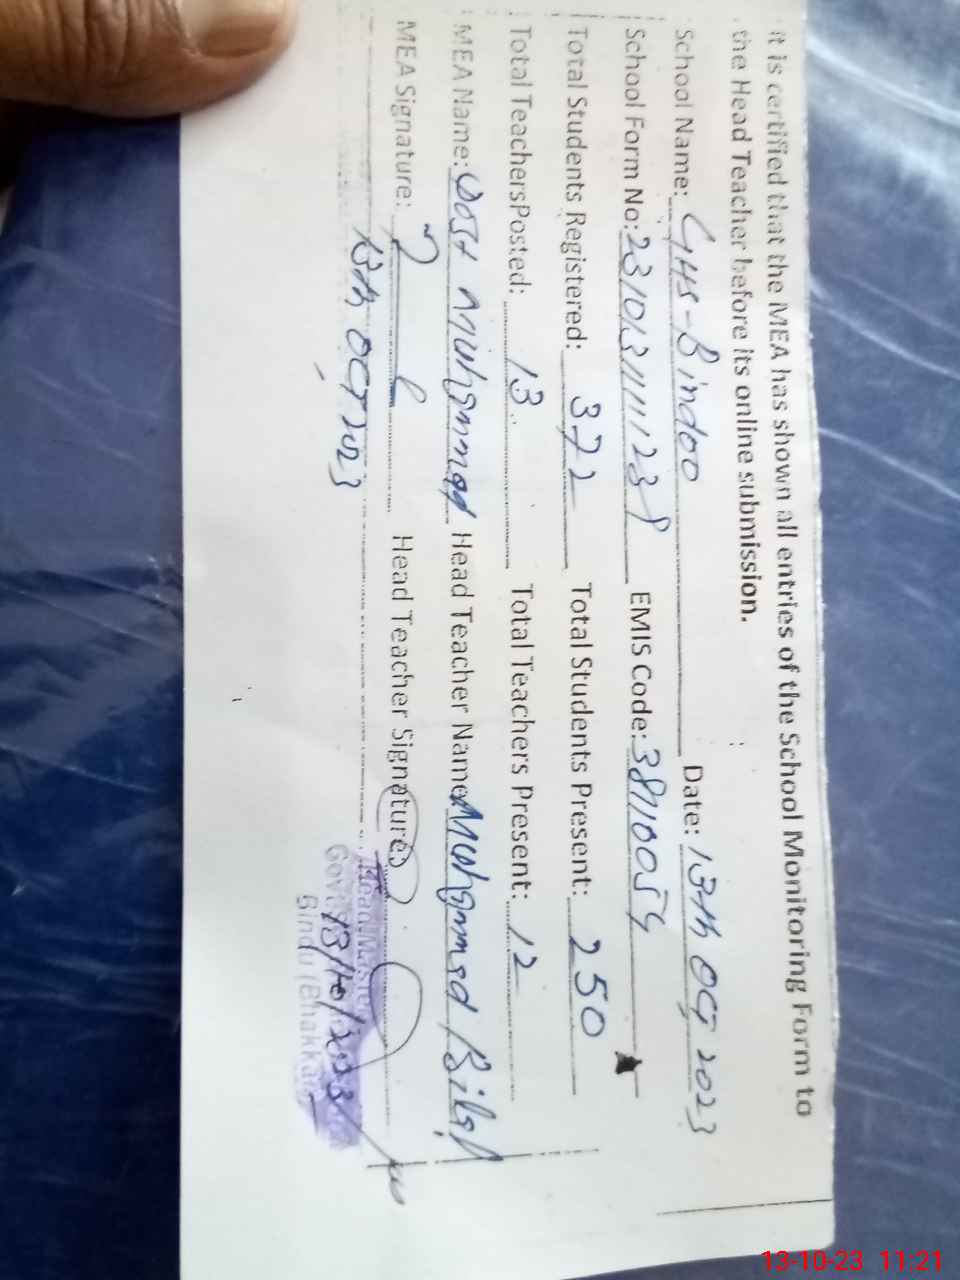 it is certified that the MEA has shown all entries of the School Monitoring Form to
the Head Teacher before its online submission.
School Name: GHS-Bindoo Date: 13th OCT 2023
School Form No: EMIS Code: 38110054
Total Students Registered: 372 Total Students Present: 250
Total TeachersPosted: 13 Total Teachers Present: 12
MEA Name: Dost Muhammad Head Teacher Name: Muhammad Bilal
MEA Signature: Head Teacher Signature:
13th OCT 2023
Head Master
Govt
13/10/2023
Bindu (Bhakkar)
13-10-23 11:21